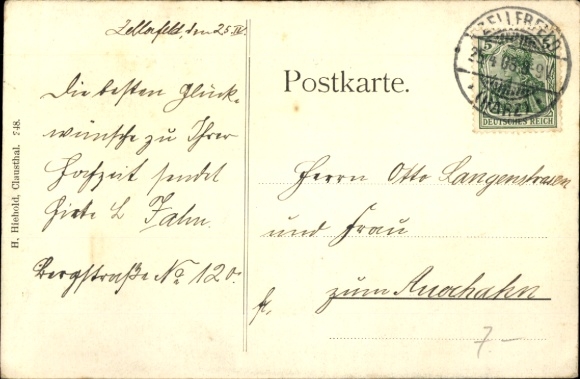 Zellerfeld, den 25. IV.
Die besten Glück-
wünsche zu Ihrer
Hochzeit sendet
L. Jahn.
Bergstraße No 120.
H. Hiebold, Clausthal. 748.
Postkarte.
ZELLERFELD
(HARZ)
DEUTSCHES REICH
Herrn Otto Langenstrassen
und Frau
zum
fr.
7.-